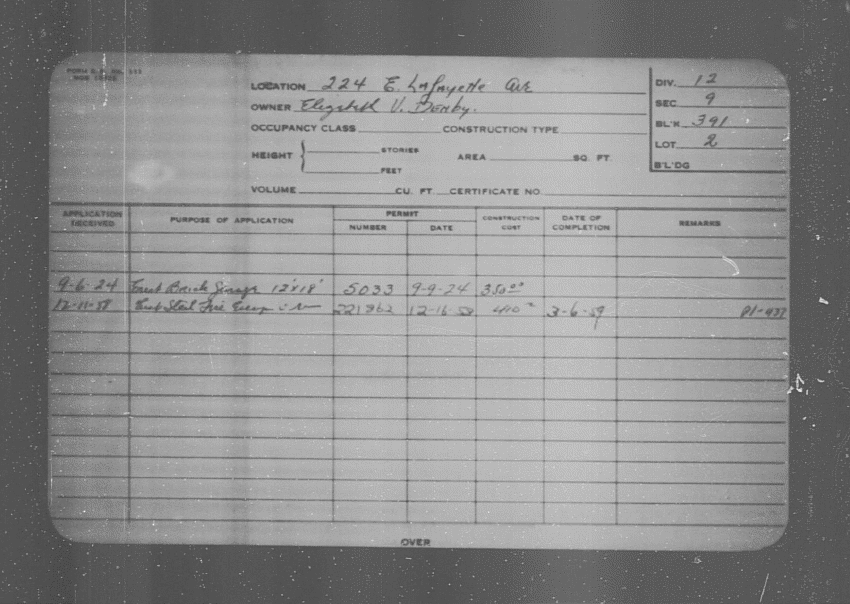 LOCATION 224 E. Lafayette Ave
OWNER Elizabeth V. Denby.
OCCUPANCY CLASS CONSTRUCTION TYPE
HEIGHT STORIES AREA SQ. FT.
FEET
VOLUME CU. FT. CERTIFICATE NO.
DIV. 12
SEC 9
BL'K 391
LOT 2
B'L'DG
APPLICATION RECEIVED PURPOSE OF APPLICATION PERMIT CONSTRUCTION COST DATE OF COMPLETION REMARKS
NUMBER DATE
9-6-24 Brick Garage 12'x18' 5033 9-9-24 350.00
12-11-58 Steel Fire 221862 12-16-58 410 3-6-59 P1-437
OVER